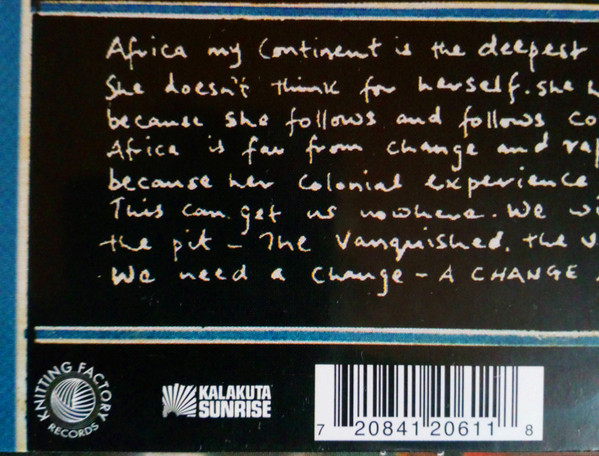 Africa my Continent is the deepest
She doesn't think for herself. She h
because she follows and follows co
Africa is far from change and rap
because her colonial experience
This can get us nowhere. We wi
the pit – The Vanquished. the v
We need a change – A CHANGE
KNITTING FACTORY
RECORDS
KALAKUTA
SUNRISE
7 20841 20611 8